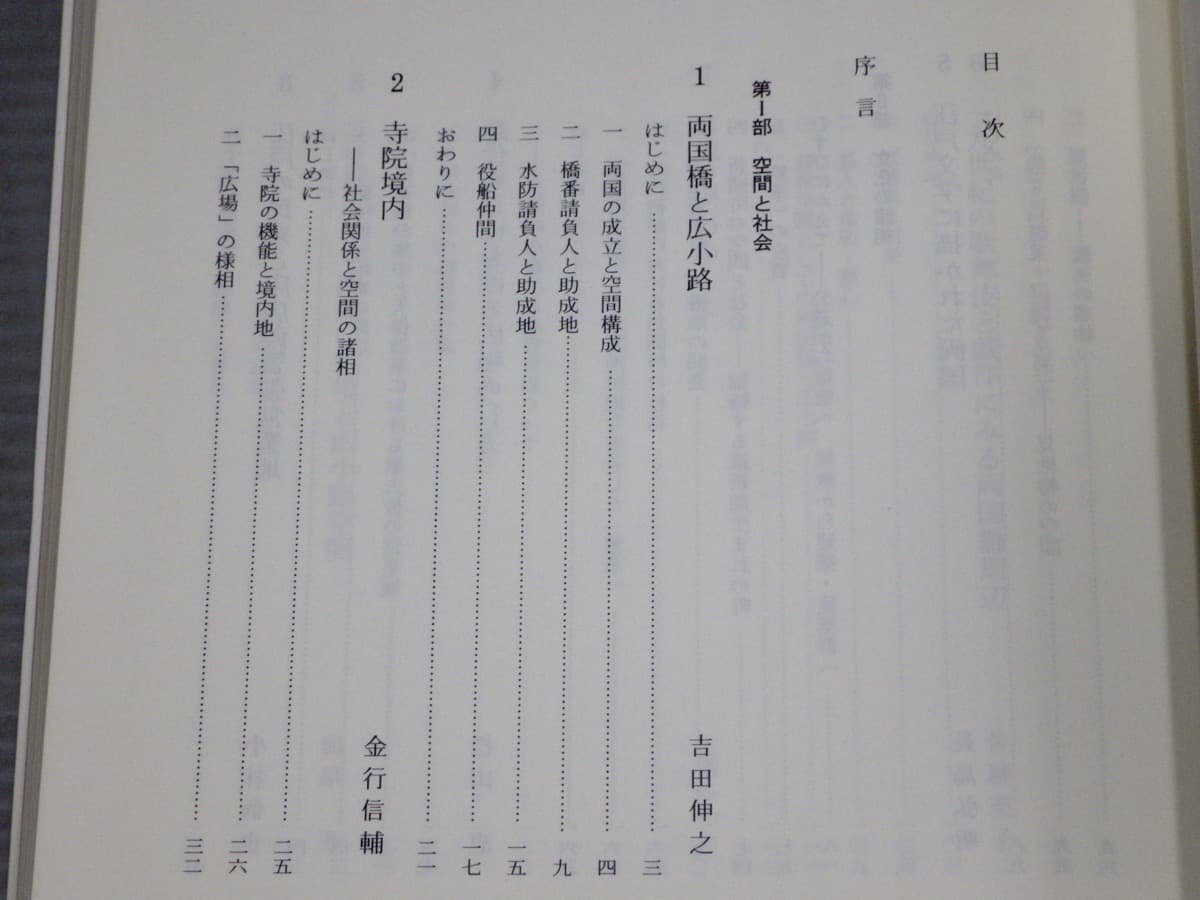 目次
序言
第Ⅰ部 空間と社会
1 両国橋と広小路 吉田伸之
はじめに……三
一 両国の成立と空間構成……四
二 橋番請負人と助成地……九
三 水防請負人と助成地……一五
四 役船仲間……一七
おわりに……二一
2 寺院境内 金行信輔
――社会関係と空間の諸相
はじめに……二五
一 寺院の機能と境内地……二六
二 「広場」の様相……三二